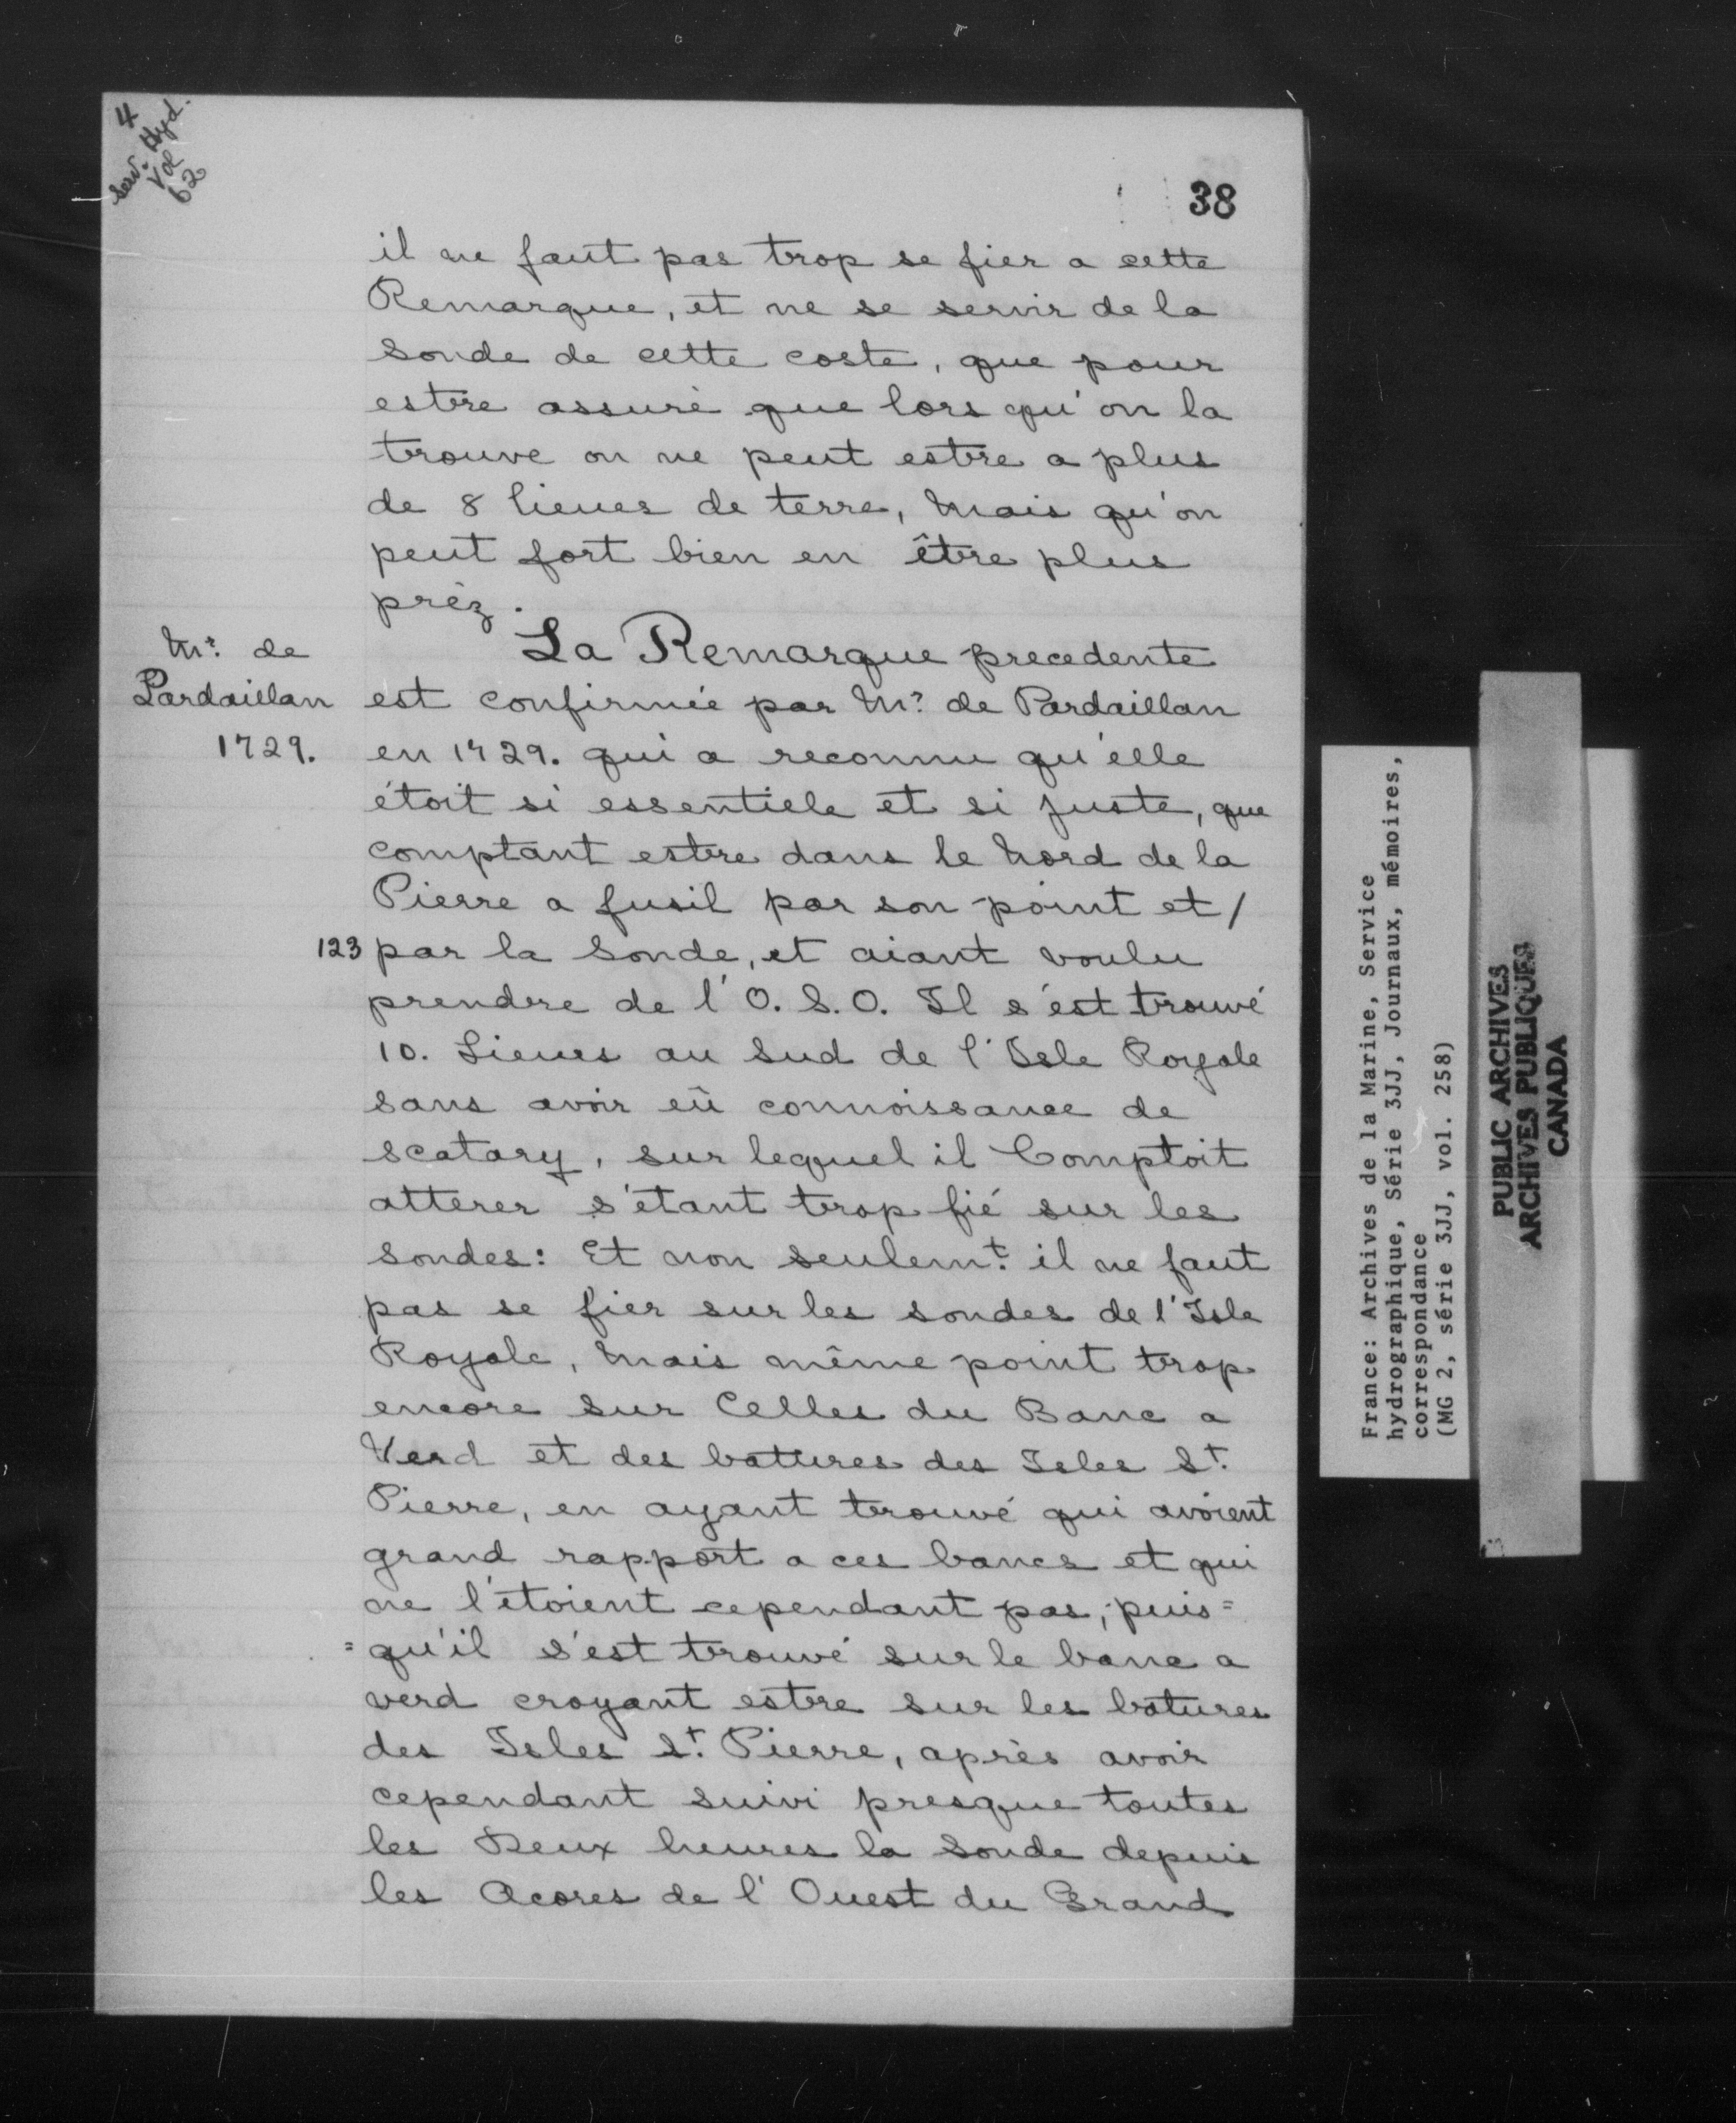 4
Serv. Hyd.
Vol
62
38
il ne faut pas trop se fier a cette
Remarque, et ne se servir de la
Sonde de cette coste, que pour
estre assuré que lors qu'on la
trouve on ne peut estre a plus
de 8 lieues de terre, Mais qu'on
peut fort bien en être plus
préz.
Mr. de
Pardaillan
1729.
La Remarque precedente
est confirmée par Mr. de Pardaillan
en 1729. qui a reconnu qu'elle
étoit si essentiele et si juste, que
comptant estre dans le Nord de la
Pierre a fusil par son point et /
123 par la Sonde, et aiant voulu
prendre de l'O. S. O. Il s'est trouvé
10. Lieues au Sud de l'Isle Royale
sans avoir eû connoissance de
scatary, sur lequel il Comptoit
atterer s'étant trop fié sur les
sondes: Et non seulemt. il ne faut
pas se fier sur les sondes de l'Isle
Royale, Mais même point trop
encore Sur Celles du Banc a
Verd et des battures des Isles St.
Pierre, en ayant trouvé qui avoient
grand rapport a ces bancs et qui
ne l'étoient cependant pas, puis=
=qu'il s'est trouvé sur le banc a
verd croyant estre sur les batures
des Isles St. Pierre, après avoir
cependant suivi presque toutes
les Deux heures la Sonde depuis
les Acores de l'Ouest du Grand
France: Archives de la Marine, Service
hydrographique, Série 3JJ, Journaux, mémoires,
correspondance
(MG 2, série 3JJ, vol. 258)
PUBLIC ARCHIVES
ARCHIVES PUBLIQUES
CANADA